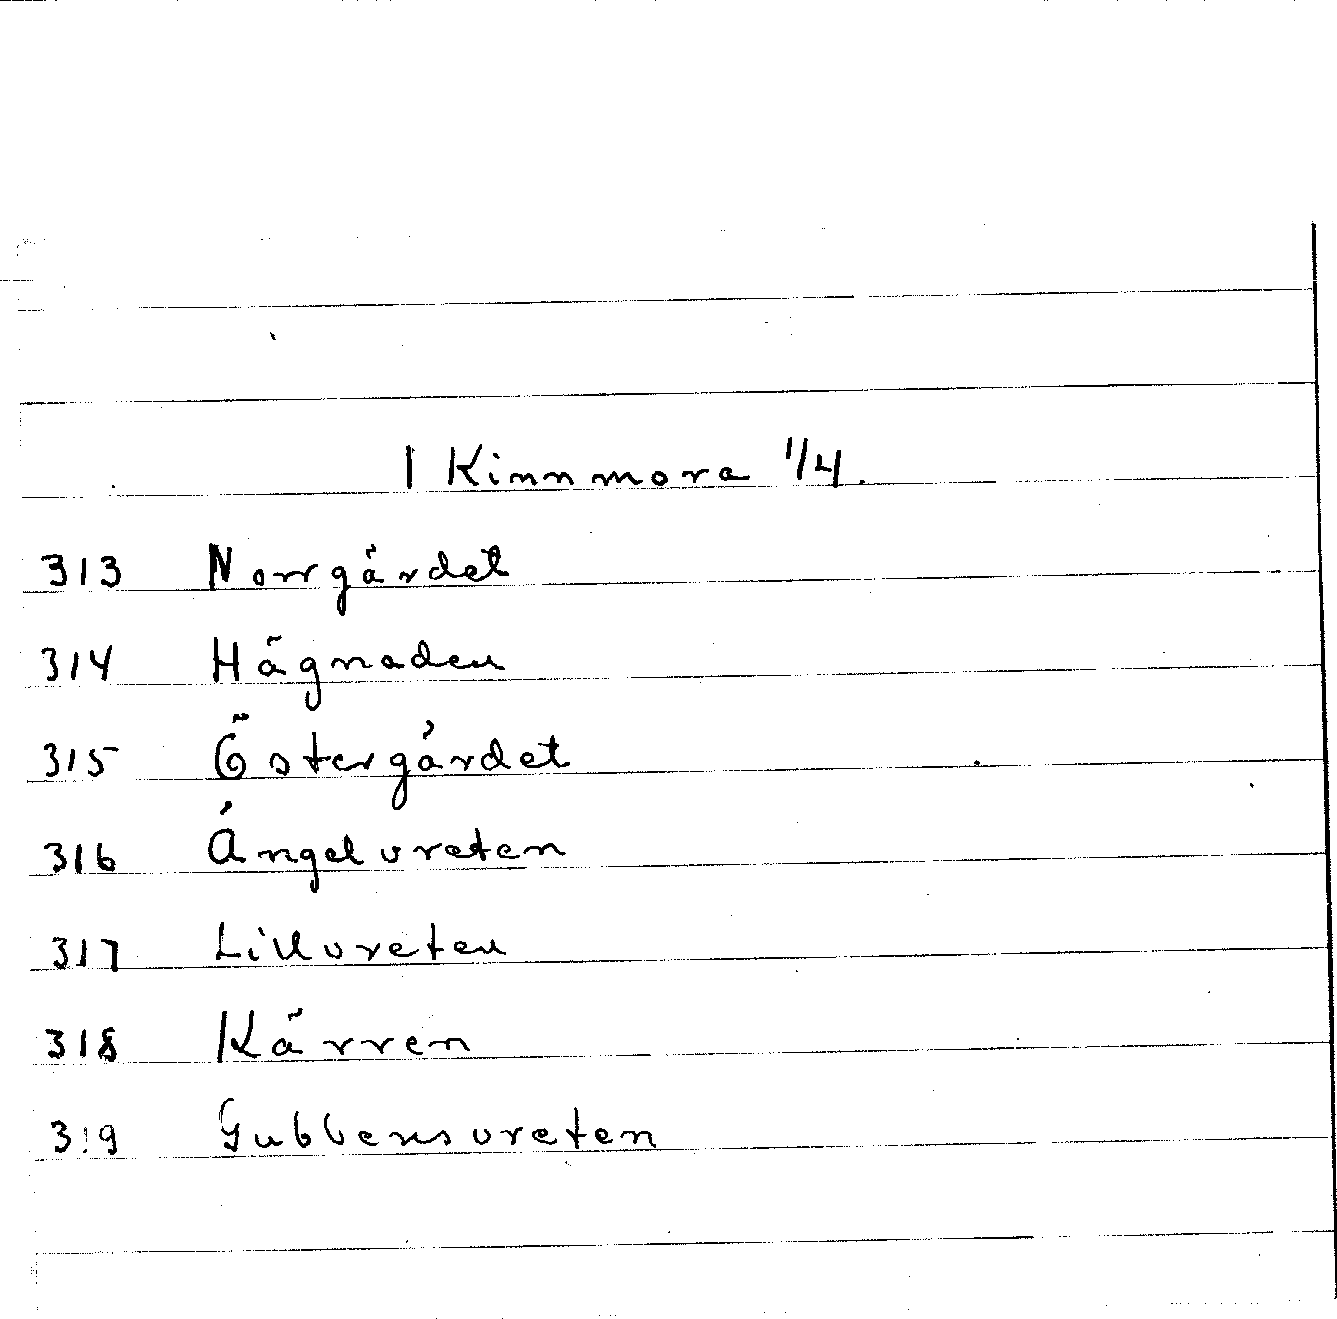 I Kinnmora 1/4.
313 Norrgärdet
314 Hägnaden
315 Östergärdet
316 Ängelvreten
317 Lillvreten
318 Kärren
319 Gubbensvreten